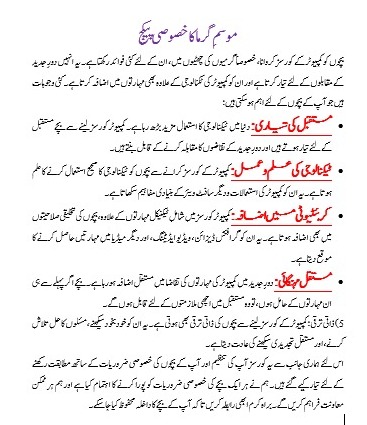 موسم گرما کا خصوصی پیکج
بچوں کو کمپیوٹر کے کورسز کروانا، خصوصاً گرمیوں کی چھٹیوں میں، ان کے لئے کئی فوائد رکھتا ہے۔ یہ انہیں دورِ جدید
کے مقابلوں کے لئے تیار کرتا ہے اور ان کو کمپیوٹر کی ٹکنالوجی کے علاوہ بھی مہارتوں میں اضافہ کرتا ہے۔ کئی وجوہات
ہیں جو آپ کے بچوں کے لئے اہم ہو سکتی ہیں:
• مستقبل کی تیاری: دنیا میں ٹیکنالوجی کا استعمال مزید بڑھ رہا ہے۔ کمپیوٹر کورسز لینے سے بچے مستقبل
کے لئے تیار ہوتے ہیں اور دورِ جدید کے تقاضوں کا مقابلہ کرنے کے قابل بنتے ہیں۔
• ٹیکنالوجی کی علم و عمل: کمپیوٹر کے کورسز کرانے سے بچوں کو ٹیکنالوجی کا صحیح استعمال کرنے کا علم
ہوتا ہے۔ یہ ان کو کمپیوٹر کی استعمالات اور دیگر سافٹ ویئر کے بنیادی مفاہیم سکھاتا ہے۔
• کرئیٹیوٹی میں اضافہ: کمپیوٹر کورسز میں شامل ٹیکنیکل مہارتوں کے علاوہ، بچوں کی تخلیقی صلاحیتوں
میں بھی اضافہ ہوتا ہے۔ یہ ان کو گرافکس ڈیزائن، ویڈیو ایڈیٹنگ، اور دیگر میڈیا میں مہارتیں حاصل کرنے کا
موقع دیتا ہے۔
• مستقل مہنگائی: دورِ جدید میں کمپیوٹر کی مہارتوں کی تقاضا میں مستقل اضافہ ہو رہا ہے۔ بچے اگر پہلے سے ہی
ان مہارتوں کے حامل ہوں، تو وہ مستقبل میں اچھی ملازمتوں کے لئے قابل ہوں گے۔
5) ذاتی ترقی: کمپیوٹر کے کورسز لینے سے بچوں کی ذاتی ترقی بھی ہوتی ہے۔ یہ ان کو خود بخود سیکھنے، مسئلوں کا حل تلاش
کرنے، اور مستقل تجدیدی سیکھنے کی عادت دیتا ہے۔
اس لئے ہماری جانب سے یہ کورسز آپ کی تنظیم اور آپ کے بچوں کی خصوصی ضروریات کے ساتھ مطابقت رکھنے
کے لئے تیار کیے گئے ہیں۔ ہم نے ہر ایک بچے کی خصوصی ضروریات کو پورا کرنے کا اہتمام کیا ہے اور ہم ہر ممکن
معاونت فراہم کریں گے۔ براہ کرم ابھی رابطہ کریں تاکہ آپ کے بچے کا داخلہ محفوظ کیا جا سکے۔